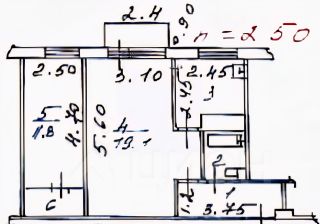 2.4
.90
n = 2 50
2.50
3.10
2.45
5
11.8
4.70
5.60
4
19.1
2.45
3
2
6
1.2
1
3.75